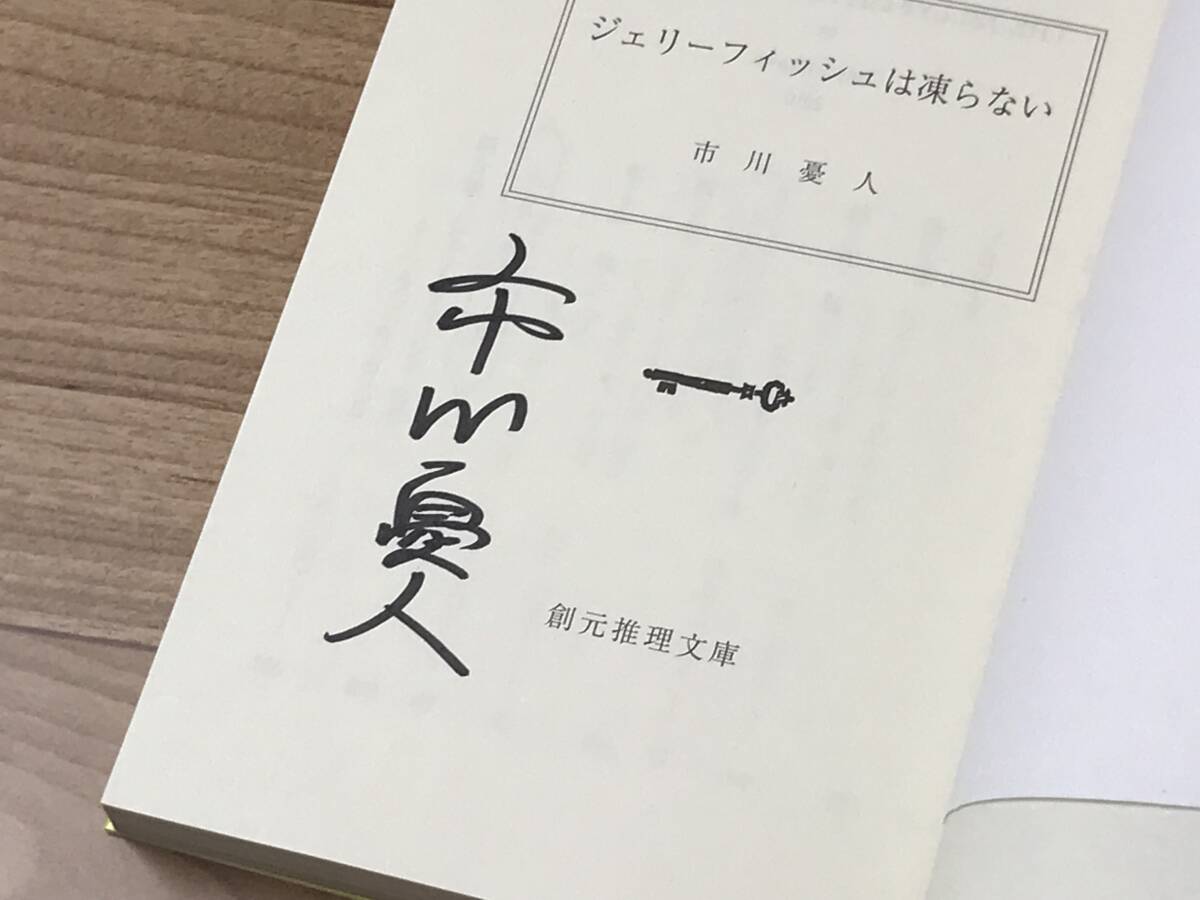 ジェリーフィッシュは凍らない
市川憂人
市川憂人
創元推理文庫